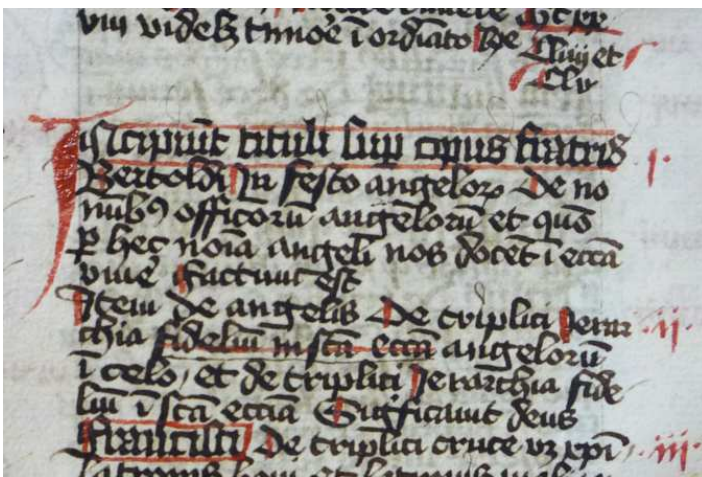 viij videlꝫ timore ī ordīato
Cliiij et
Clv
Incipiūt tituli sup opus fratris j.
Bertoldi In festo angeloꝝ De no
nūbꝰ officiorū angelorū et quō
ꝑ hec noīa angeli nos docēt ī eccā
viuē Factum est
Item de angelis De triplici Jerar .ij.
chia fidelium in scā eccā angelorū
ī celo, et de triplici Jerarchia fide
liū ī scā eccīa Sigficauit deus
Francisci De triplici cruce vꝫ xpī, .iij.